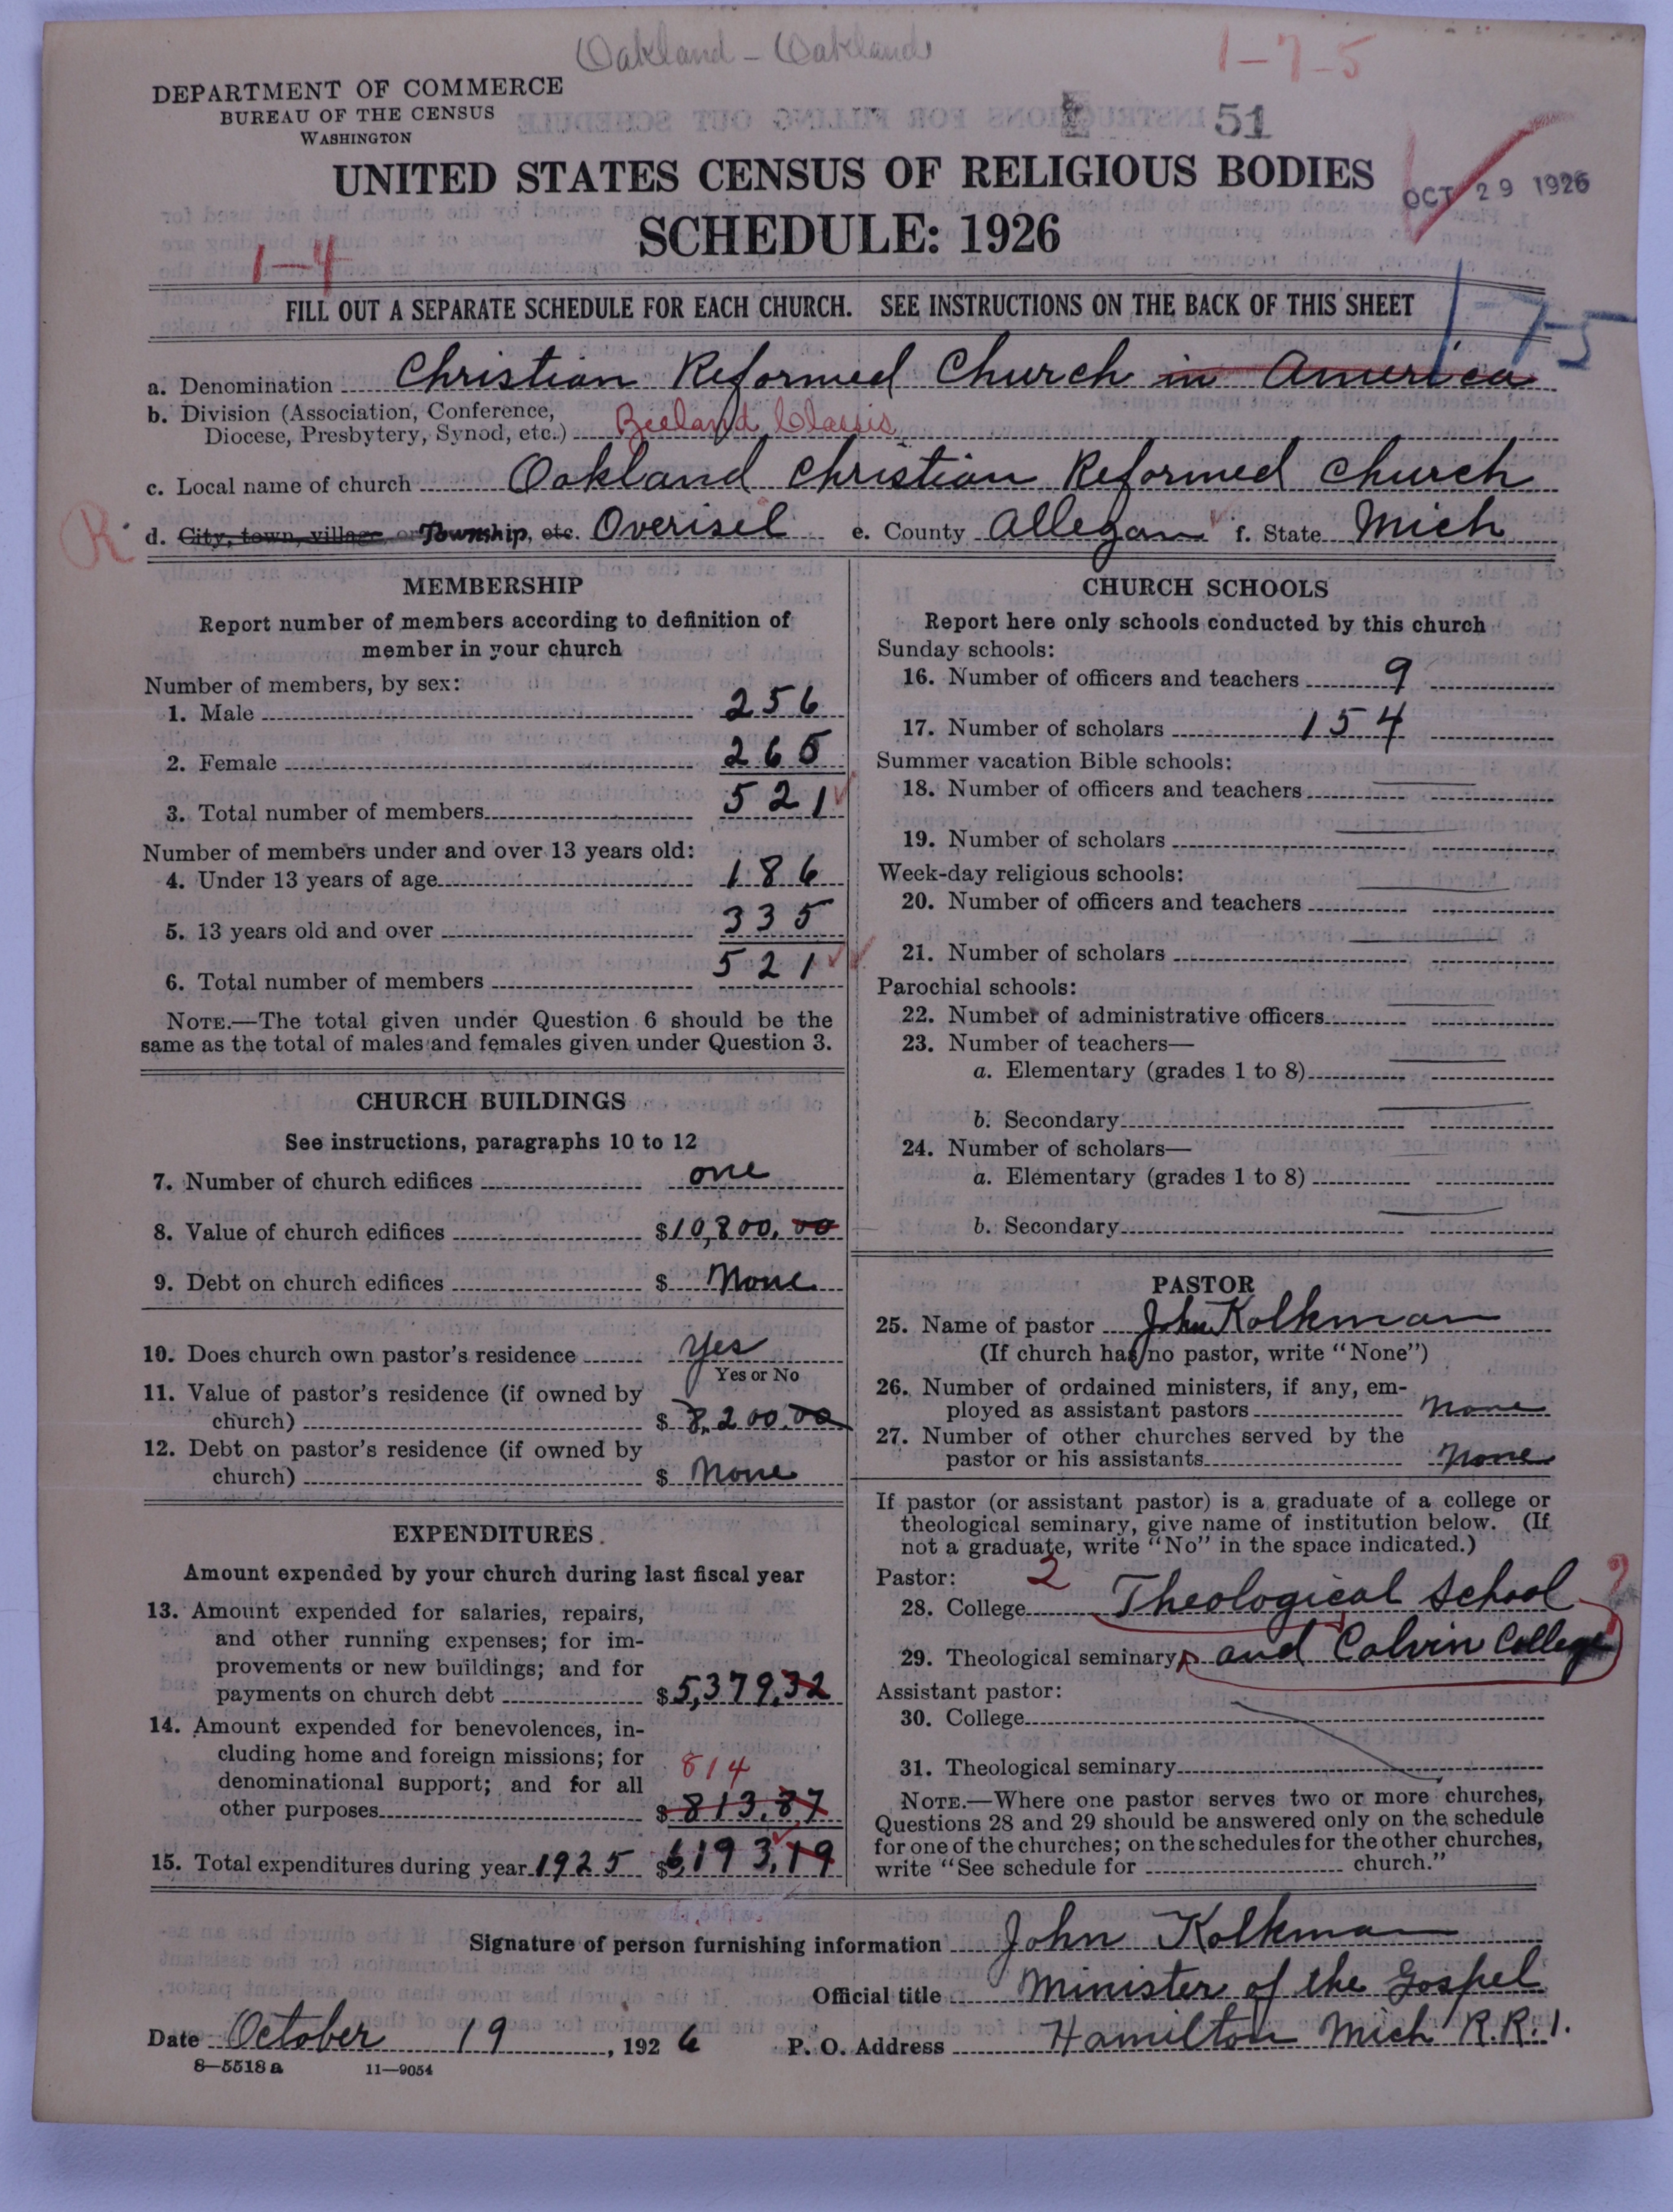 Oakland - Oakland
1-7-5
DEPARTMENT OF COMMERCE
BUREAU OF THE CENSUS
WASHINGTON
51
UNITED STATES CENSUS OF RELIGIOUS BODIES
OCT 29 1926
SCHEDULE: 1926
1-4
FILL OUT A SEPARATE SCHEDULE FOR EACH CHURCH. SEE INSTRUCTIONS ON THE BACK OF THIS SHEET
1-7-5
a. Denomination Christian Reformed Church in America
b. Division (Association, Conference,
Diocese, Presbytery, Synod, etc.) Zeeland Classis
c. Local name of church Oakland Christian Reformed Church
R
d. City, town, village, or Township, etc. Overisel e. County Allegan f. State Mich
MEMBERSHIP
Report number of members according to definition of
member in your church
Number of members, by sex:
1. Male 256
2. Female 265
3. Total number of members 521
Number of members under and over 13 years old:
4. Under 13 years of age 186
5. 13 years old and over 335
6. Total number of members 521
NOTE.—The total given under Question 6 should be the
same as the total of males and females given under Question 3.
CHURCH BUILDINGS
See instructions, paragraphs 10 to 12
7. Number of church edifices one
8. Value of church edifices $10,800.00
9. Debt on church edifices $ None
10. Does church own pastor's residence Yes
Yes or No
11. Value of pastor's residence (if owned by
church) $ 8,200.00
12. Debt on pastor's residence (if owned by
church) $ None
EXPENDITURES
Amount expended by your church during last fiscal year
13. Amount expended for salaries, repairs,
and other running expenses; for im-
provements or new buildings; and for
payments on church debt $5,379.32
14. Amount expended for benevolences, in-
cluding home and foreign missions; for
denominational support; and for all
814
other purposes $813.87
15. Total expenditures during year 1925 $6193.19
CHURCH SCHOOLS
Report here only schools conducted by this church
Sunday schools:
16. Number of officers and teachers 9
17. Number of scholars 154
Summer vacation Bible schools:
18. Number of officers and teachers
19. Number of scholars
Week-day religious schools:
20. Number of officers and teachers
21. Number of scholars
Parochial schools:
22. Number of administrative officers
23. Number of teachers—
a. Elementary (grades 1 to 8)
b. Secondary
24. Number of scholars—
a. Elementary (grades 1 to 8)
b. Secondary
PASTOR
25. Name of pastor John Kolkman
(If church has no pastor, write "None")
26. Number of ordained ministers, if any, em-
ployed as assistant pastors None
27. Number of other churches served by the
pastor or his assistants None
If pastor (or assistant pastor) is a graduate of a college or
theological seminary, give name of institution below. (If
not a graduate, write "No" in the space indicated.)
Pastor: 2
28. College Theological School ?
29. Theological seminary and Calvin College
Assistant pastor:
30. College
31. Theological seminary
NOTE.—Where one pastor serves two or more churches,
Questions 28 and 29 should be answered only on the schedule
for one of the churches; on the schedules for the other churches,
write "See schedule for church."
Signature of person furnishing information John Kolkman
Official title Minister of the Gospel
Date October 19, 1926 P. O. Address Hamilton Mich R.R.1.
8—5518a 11—9054